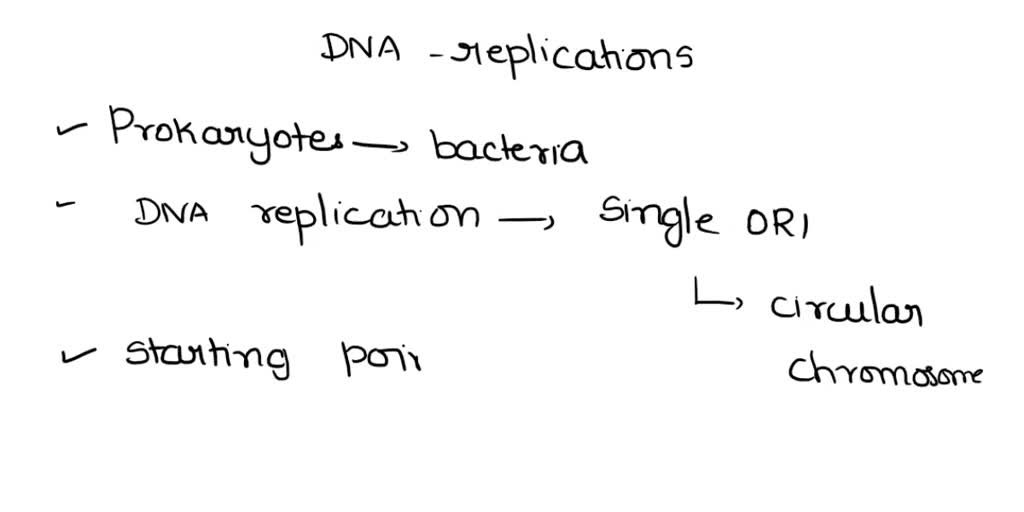 DNA - replications
✓ Prokaryotes → bacteria
- DNA replication → Single ORI
↳ circular
✓ starting poin
chromosome